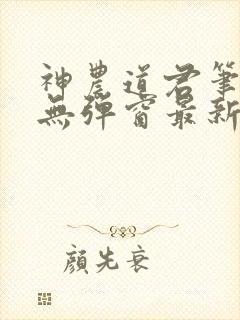 神農道君筆
無彈窗最新
顏先衰